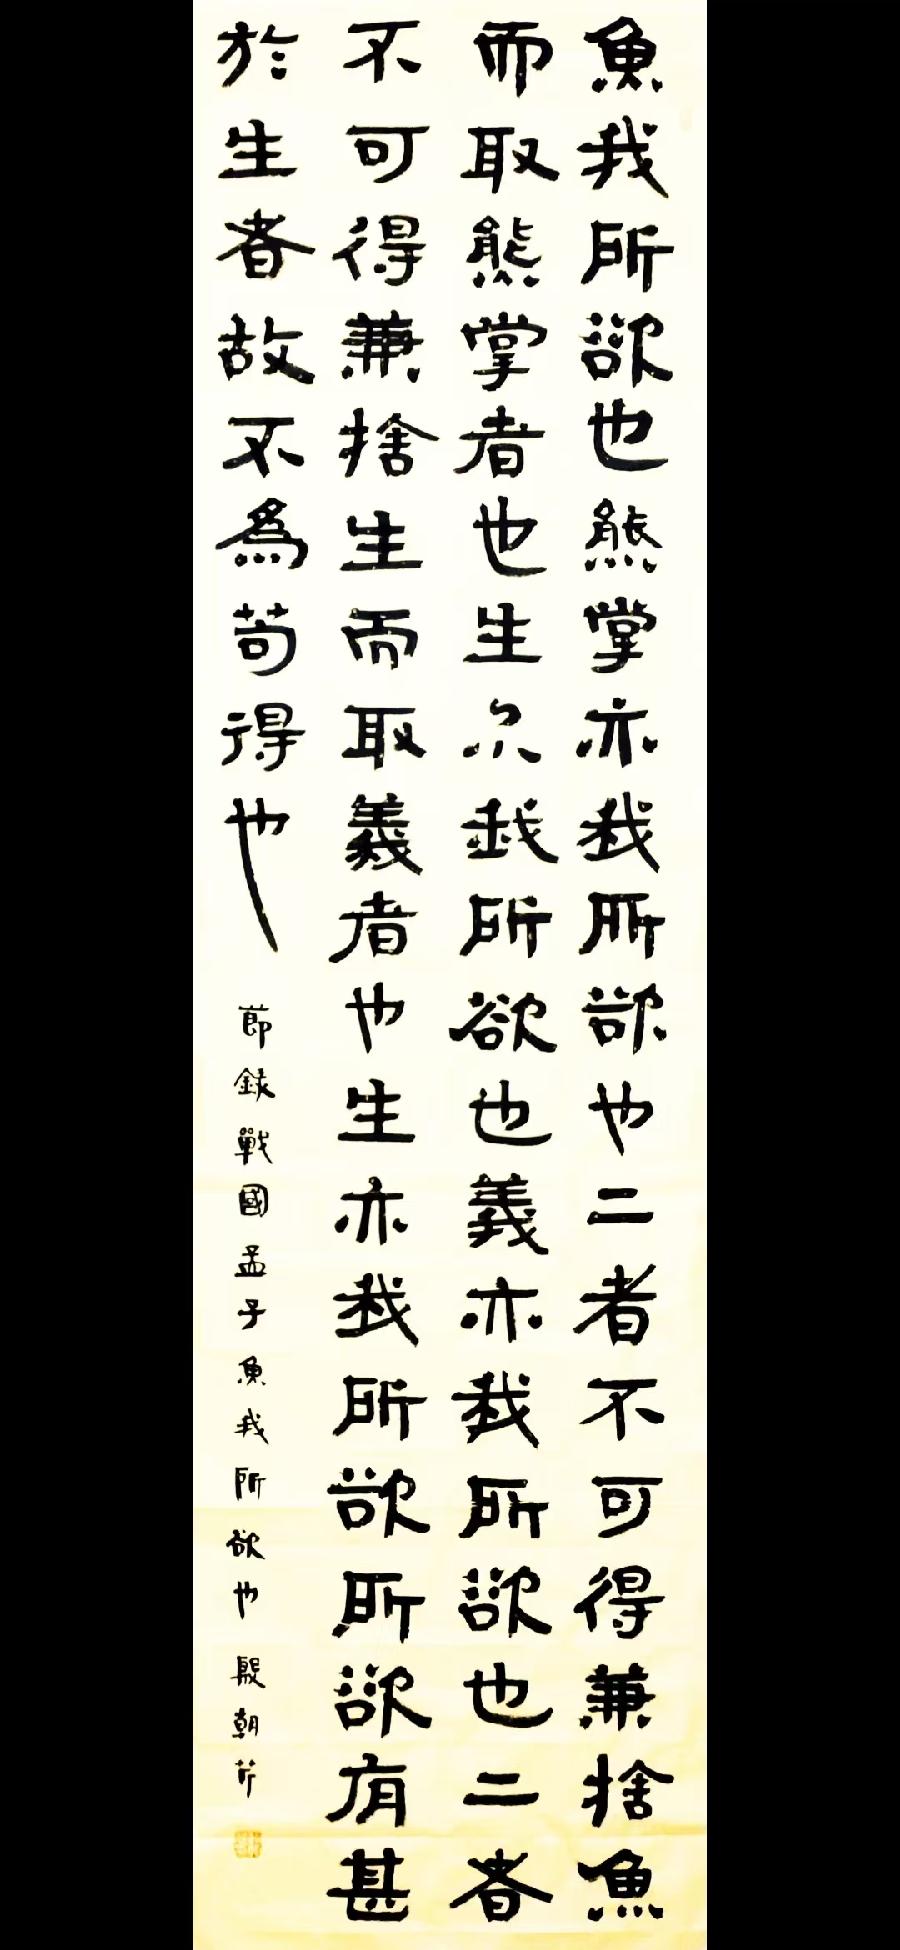 魚我所欲也熊掌亦我所欲也二者不可得兼捨魚
而取熊掌者也生亦我所欲也義亦我所欲也二者
不可得兼捨生而取義者也生亦我所欲所欲有甚
於生者故不為苟得也
節錄戰國孟子魚我所欲也 殷朝芹